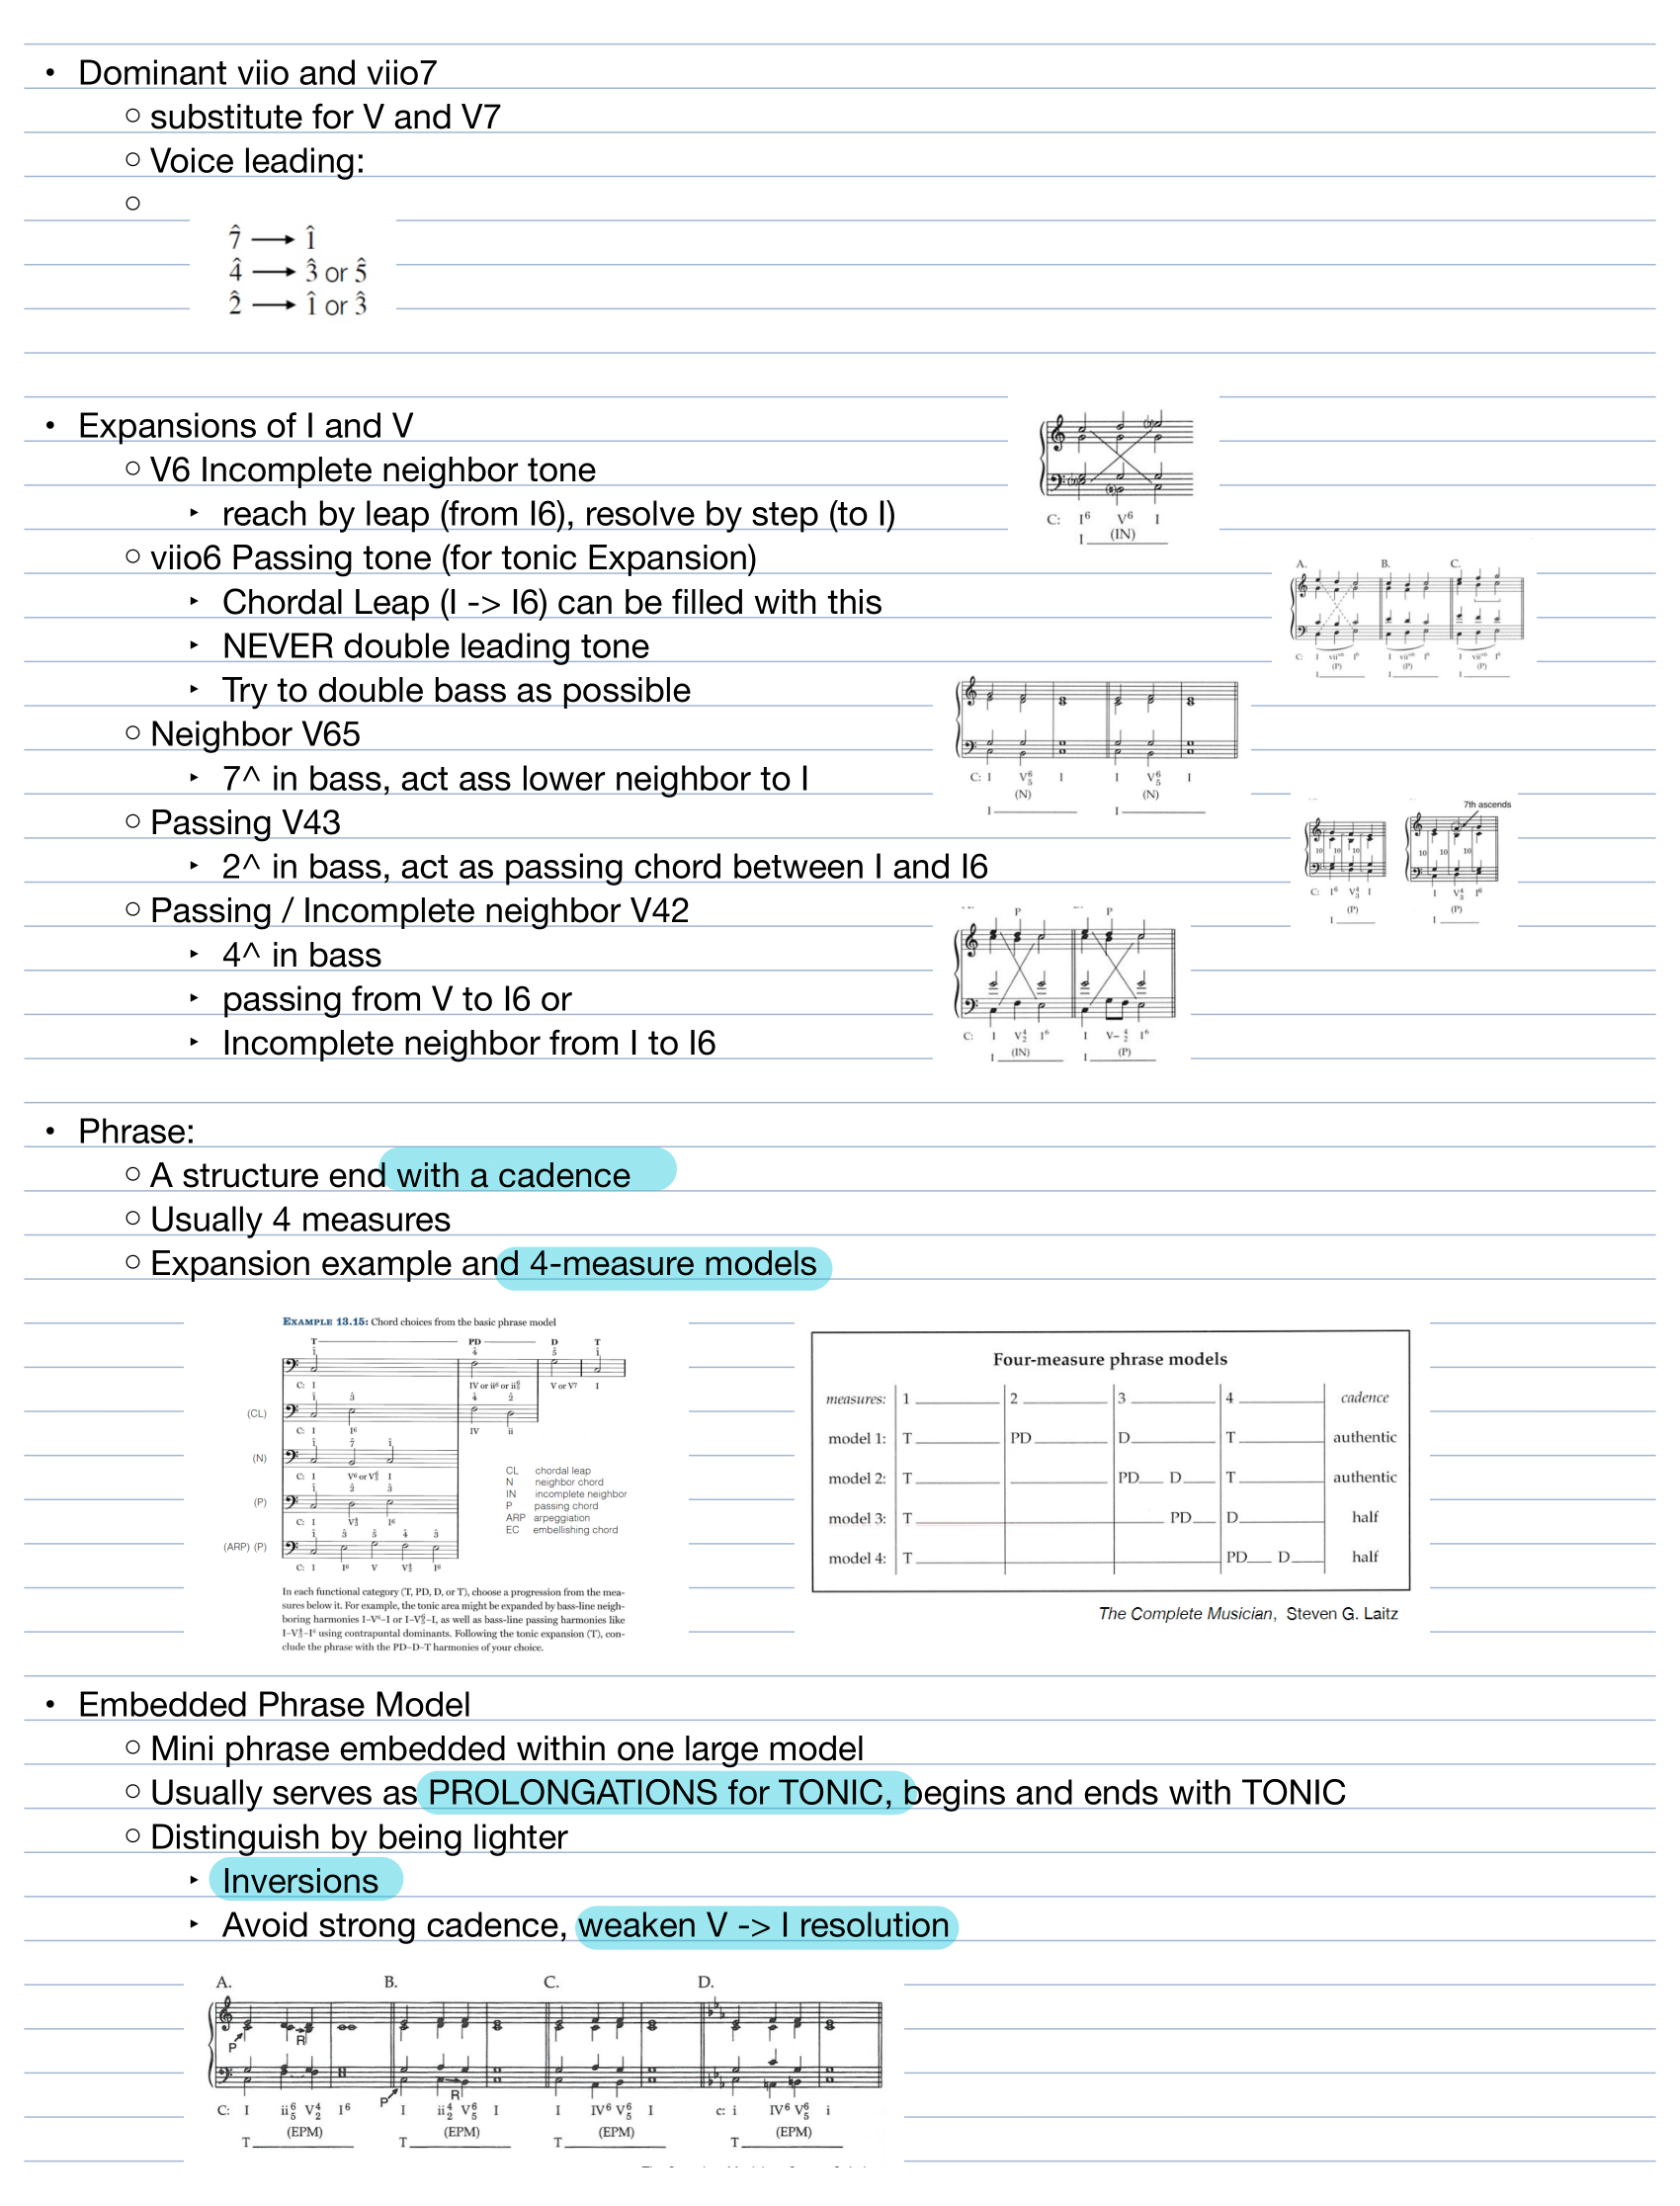 • Dominant viio and viio7
○ substitute for V and V7
○ Voice leading:
○
7̂ → 1̂
4̂ → 3̂ or 5̂
2̂ → 1̂ or 3̂
• Expansions of I and V
○ V6 Incomplete neighbor tone
‣ reach by leap (from I6), resolve by step (to I)
C: I⁶ V⁶ I
I (IN)
○ viio6 Passing tone (for tonic Expansion)
‣ Chordal Leap (I -> I6) can be filled with this
‣ NEVER double leading tone
‣ Try to double bass as possible
A. B. C.
C: I viiᵒ⁶ I⁶ I viiᵒ⁶ I⁶ I viiᵒ⁶ I⁶
(P) (P) (P)
I I I
○ Neighbor V65
‣ 7^ in bass, act ass lower neighbor to I
C: I V⁶₅ I I V⁶₅ I
(N) (N)
I I
○ Passing V43
‣ 2^ in bass, act as passing chord between I and I6
7th ascends
10 10 10 10 10 10
C: I⁶ V⁴₃ I I V⁴₃ I⁶
(P) (P)
I I
○ Passing / Incomplete neighbor V42
‣ 4^ in bass
‣ passing from V to I6 or
‣ Incomplete neighbor from I to I6
P P
C: I V⁴₂ I⁶ I V– ⁴₂ I⁶
I (IN) I (P)
• Phrase:
○ A structure end with a cadence
○ Usually 4 measures
○ Expansion example and 4-measure models
EXAMPLE 13.15: Chord choices from the basic phrase model
T PD D T
1̂ 4̂ 5̂ 1̂
C: I IV or ii⁶ or ii⁶₅ V or V7 I
1̂ 3̂ 4̂ 2̂
(CL)
C: I I⁶ IV ii
1̂ 7̂ 1̂
(N)
C: I V⁶ or V⁶₅ I
1̂ 2̂ 3̂
(P)
C: I V⁴₃ I⁶
1̂ 3̂ 5̂ 4̂ 3̂
(ARP) (P)
C: I I⁶ V V⁴₂ I⁶
CL chordal leap
N neighbor chord
IN incomplete neighbor
P passing chord
ARP arpeggiation
EC embellishing chord
In each functional category (T, PD, D, or T), choose a progression from the mea-
sures below it. For example, the tonic area might be expanded by bass-line neigh-
boring harmonies I–V⁶–I or I–V⁶₅–I, as well as bass-line passing harmonies like
I–V⁴₃–I⁶ using contrapuntal dominants. Following the tonic expansion (T), con-
clude the phrase with the PD–D–T harmonies of your choice.
Four-measure phrase models
measures: 1 2 3 4 cadence
model 1: T PD D T authentic
model 2: T PD D T authentic
model 3: T PD D half
model 4: T PD D half
The Complete Musician, Steven G. Laitz
• Embedded Phrase Model
○ Mini phrase embedded within one large model
○ Usually serves as PROLONGATIONS for TONIC, begins and ends with TONIC
○ Distinguish by being lighter
‣ Inversions
‣ Avoid strong cadence, weaken V -> I resolution
A. B. C. D.
P R P R
C: I ii⁶₅ V⁴₂ I⁶ I ii⁴₂ V⁶₅ I I IV⁶ V⁶₅ I c: i IV⁶ V⁶₅ i
(EPM) (EPM) (EPM) (EPM)
T T T T